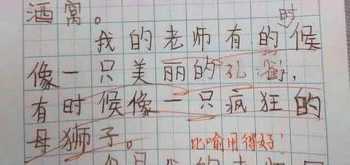 酒窝。
我的老师有的时候
像一只美丽的孔雀,
有时候像一只疯狂的
母狮子。
比喻用得好!